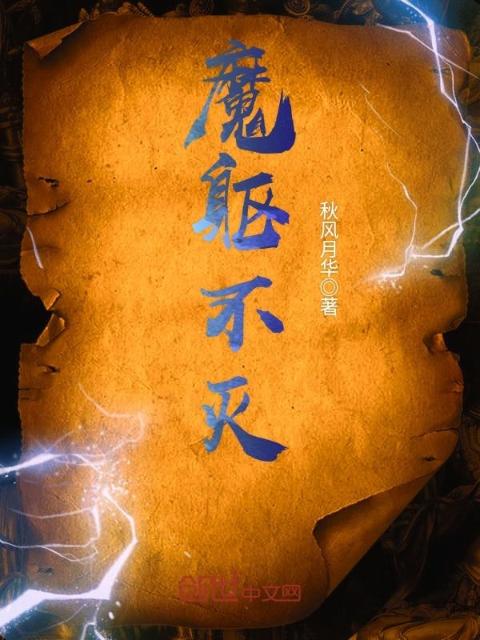 魔躯不灭
秋风月华◎著
创世中文网